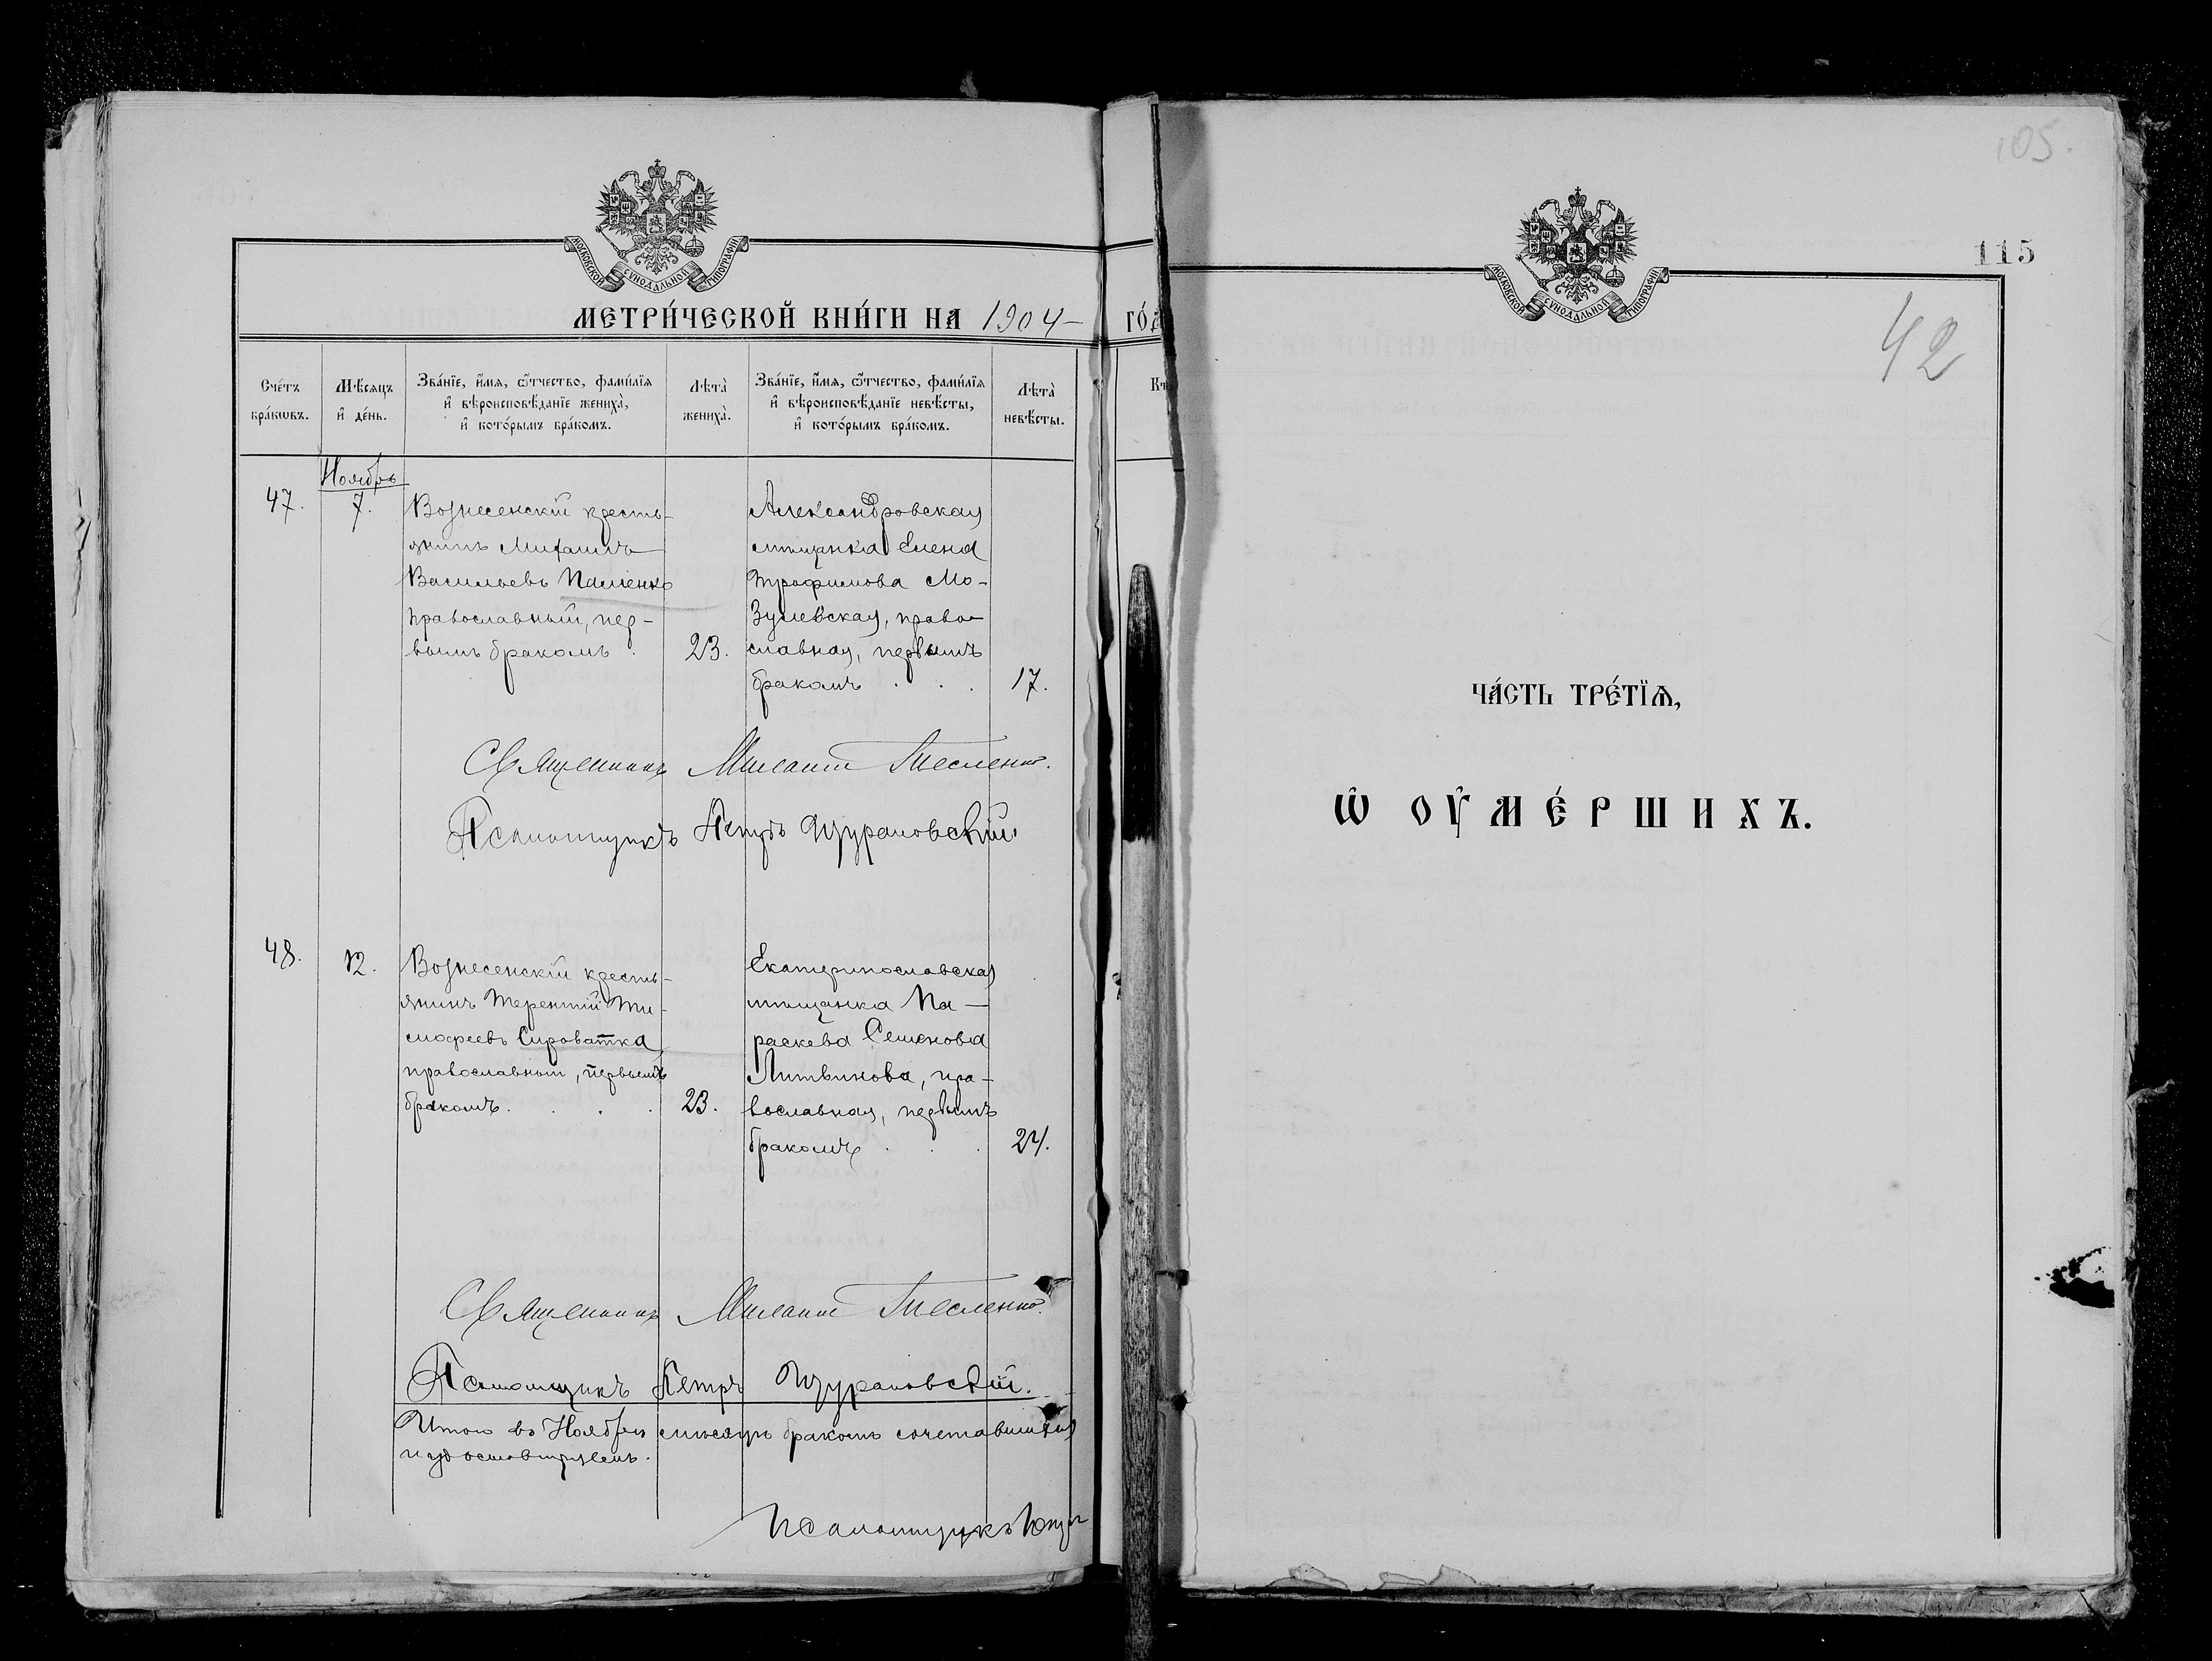 105.
МОСКОВСКОЙ СѴНОДАЛЬНОЙ ТИПОГРАФІИ
МЕТРИ́ЧЕСКОЙ КНИ́ГИ НА 1904 — ГО́Д
Сче́тъ бра́кωвъ.
Мѣ́сяцъ и҆ де́нь.
Зва́нїе, и҆́мя, ѻ҆́тчество, фами́лїя
и҆ вѣроисповѣ́данїе жениха̀,
и҆ кото́рымъ бра́комъ.
Лѣта̀ жениха̀.
Зва́нїе, и҆́мя, ѻ҆́тчество, фами́лїя
и҆ вѣроисповѣ́данїе невѣ́сты,
и҆ кото́рымъ бра́комъ.
Лѣта̀ невѣ́сты.
Ноябрь
47.
7.
Вознесенскій кресть-
янинъ Михаилъ
Васильевъ
православный, пер-
вымъ бракомъ.
23.
Александровская
мѣщанка Елена
Трофимова Мо-
зулевская, право-
славная, первымъ
бракомъ . . .
17.
Священникъ Тесленко.
Псаломщикъ Петръ Щурановскій
48.
12.
Вознесенскій кресть-
янинъ Терентій Ти-
мофеевъ Сироватка
православный, первымъ
бракомъ. . . .
23.
Екатеринославская
мѣщанка Па-
раскева Семенова
Литвинова, пра-
вославная, первымъ
бракомъ . . .
24.
Священникъ Тесленко.
Псаломщикъ Петръ Щурановскій.
Итого въ Ноябрѣ мѣсяцѣ бракомъ сочетавшихся
Псаломщикъ
115
42
МОСКОВСКОЙ СѴНОДАЛЬНОЙ ТИПОГРАФІИ
ЧА́СТЬ ТРЕ́ТЇѦ,
Ѡ҆ ОУ҆МЕ́РШИХЪ.